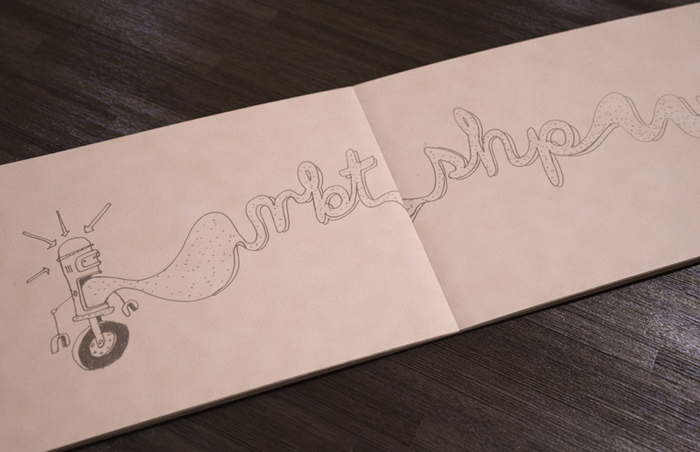 rbt shp